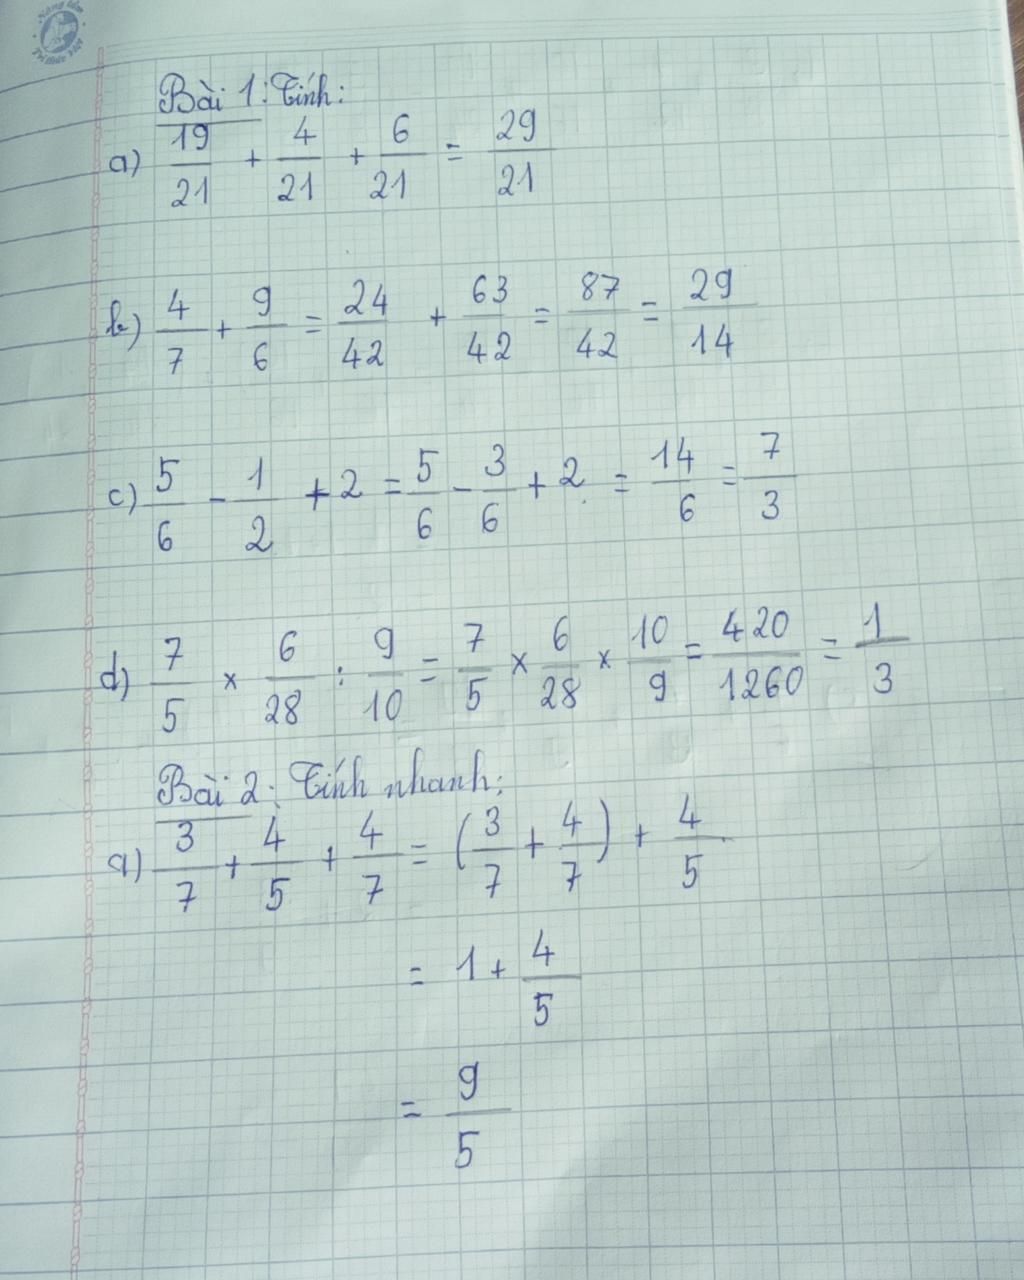 Nâng tầm
Tri thức Việt
Bài 1: Tính:
a) 19/21 + 4/21 + 6/21 = 29/21
b) 4/7 + 9/6 = 24/42 + 63/42 = 87/42 = 29/14
c) 5/6 - 1/2 + 2 = 5/6 - 3/6 + 2 = 14/6 = 7/3
d) 7/5 × 6/28 : 9/10 = 7/5 × 6/28 × 10/9 = 420/1260 = 1/3
Bài 2: Tính nhanh:
a) 3/7 + 4/5 + 4/7 = (3/7 + 4/7) + 4/5
= 1 + 4/5
= 9/5